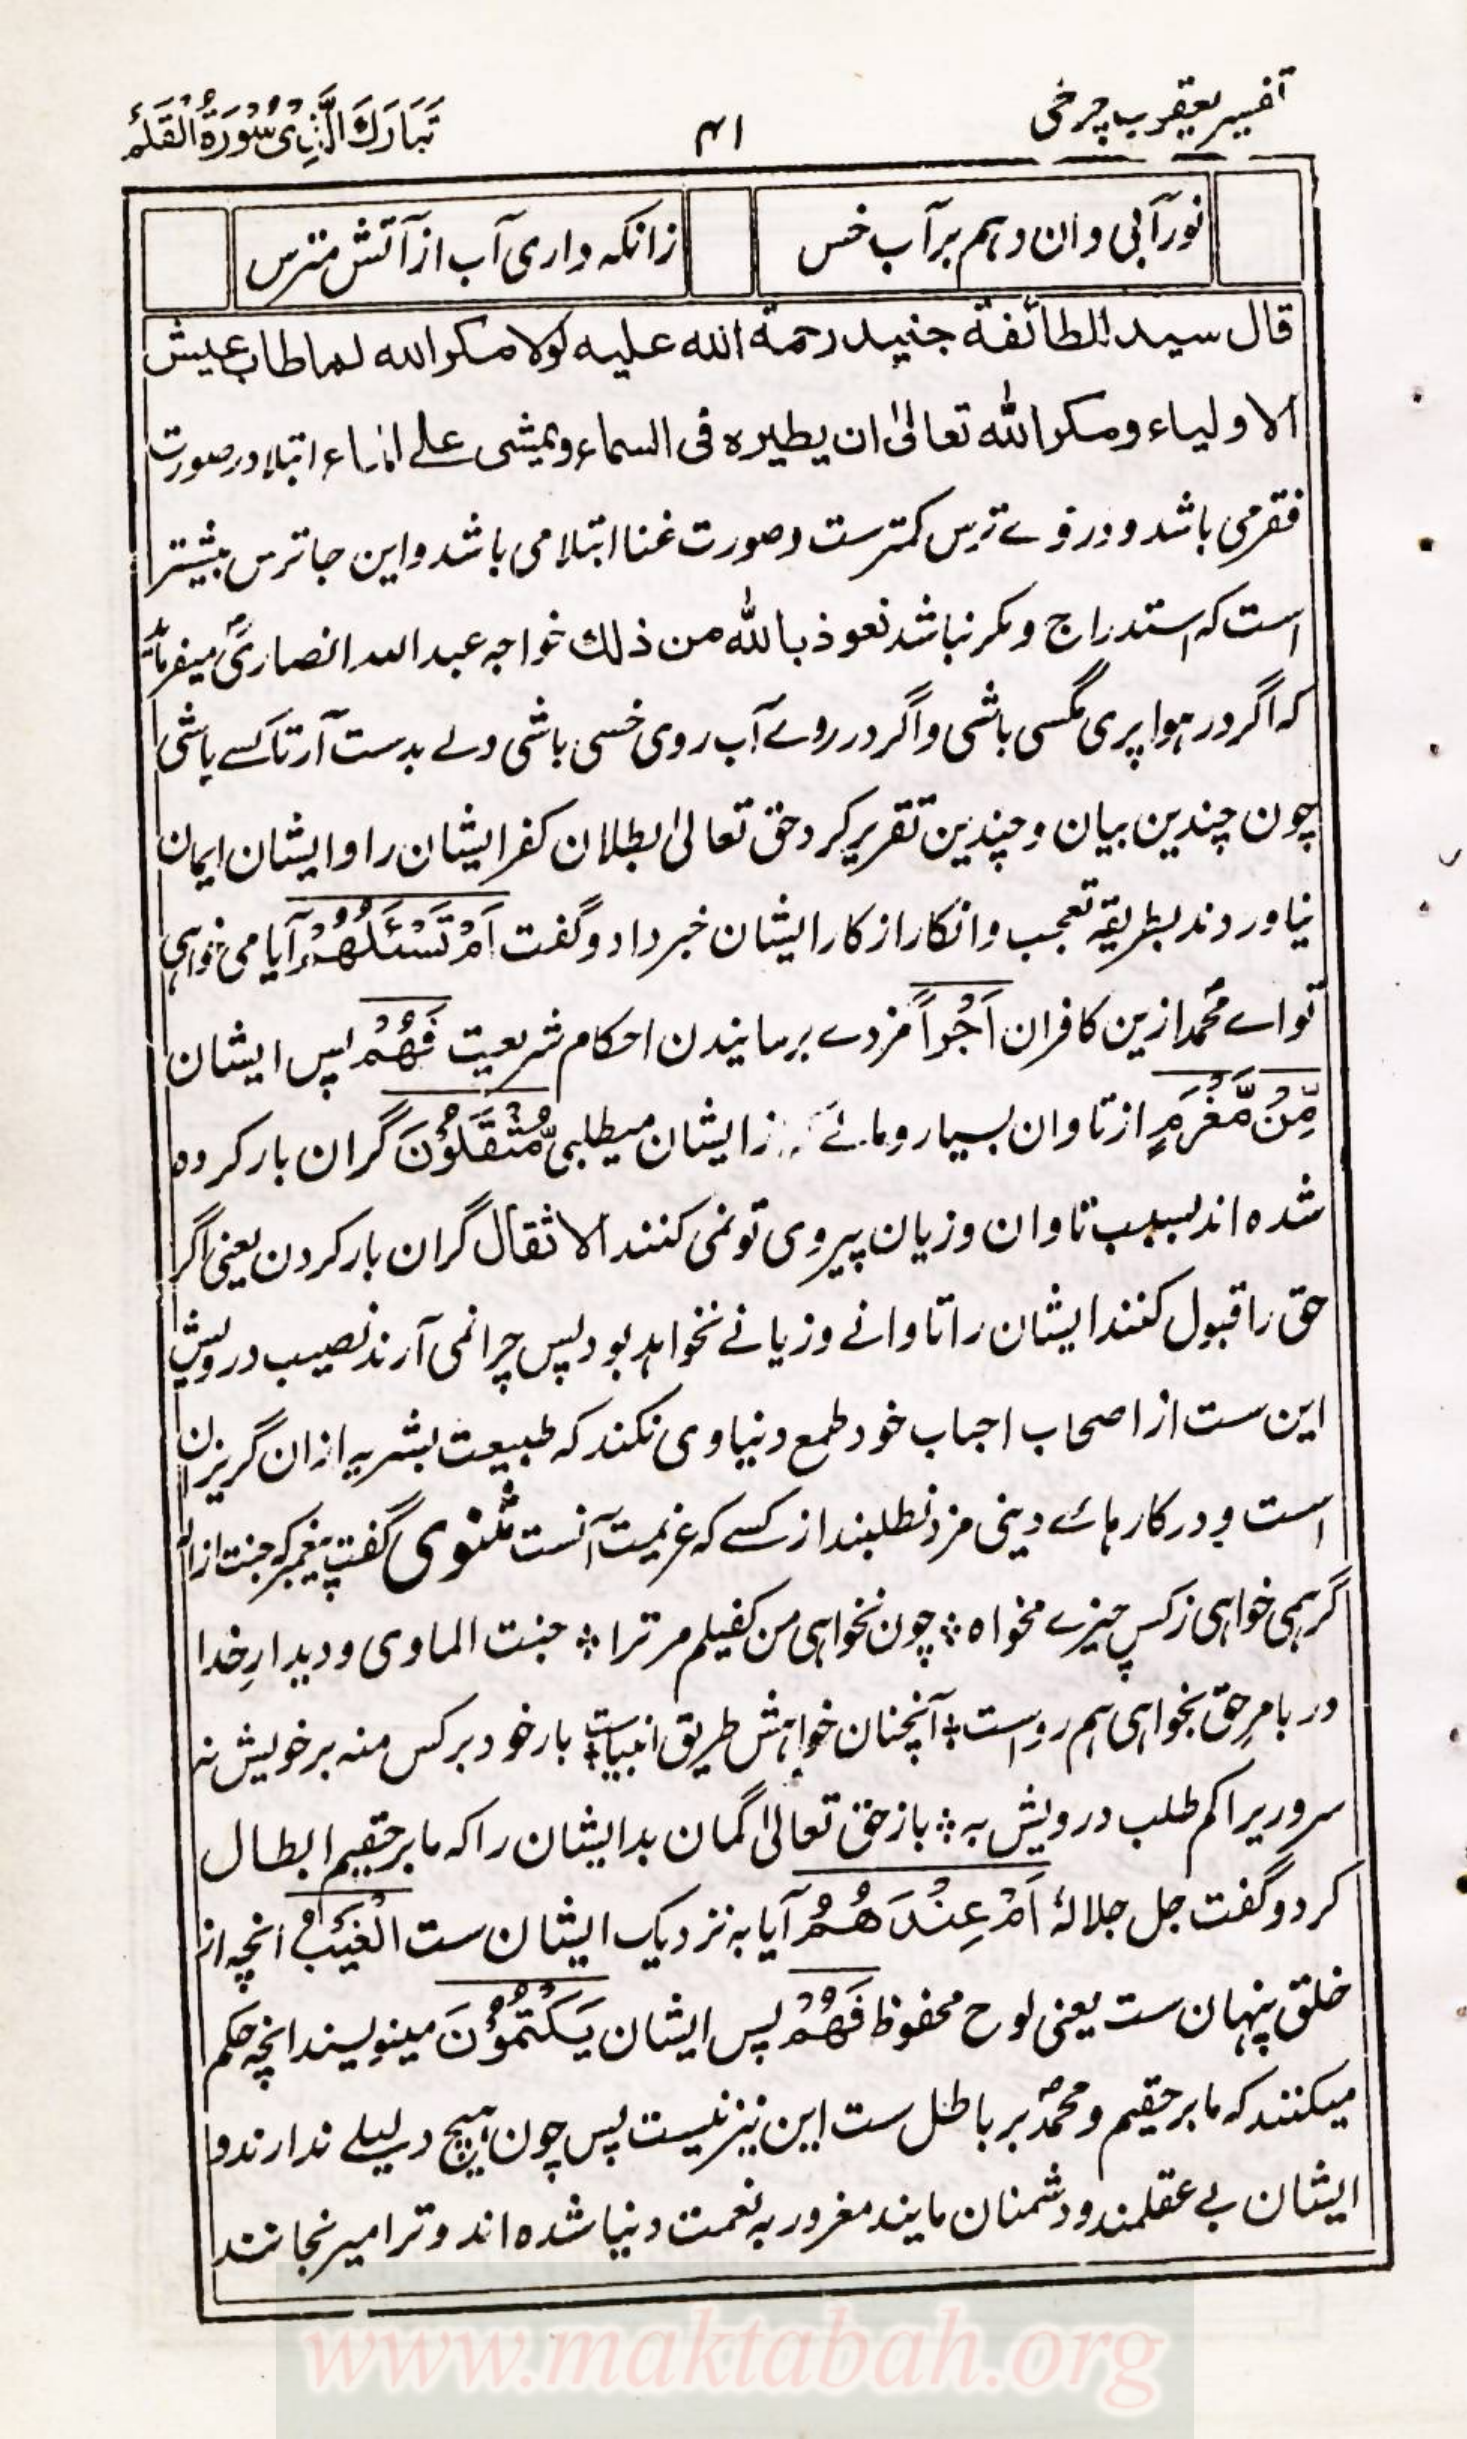 تفسیر یعقوب چرخی
۴۱
تَبَارَكَ الَّذِىْ سُوْرَةُ الْقَلَمِ
نور آبی دان و هم بر آب خس
زانکه داری آب از آتش مترس
قال سید الطائفة جنید رحمة الله علیه لولا مکر الله لما طاب عیش
الاولیاء ومکر الله تعالیٰ ان یطیره فی السماء ویمشی علے الماء ابتلا در صورت
فقر می باشد و در وے ترس کمترست و صورت غنا ابتلا می باشد و این جا ترس بیشتر
است که استدراج و مکر نباشد نعوذ بالله من ذلك خواجه عبد الله انصاریؒ میفرماید
که اگر در هوا پری مگسی باشی و اگر در روے آب روی خسی باشی دلے بدست آر تا کسے باشی
چون چندین بیان و چندین تقریر کرد حق تعالیٰ بطلان کفر ایشان را و ایشان ایمان
نیاوردند بطریقه تعجب و انکار از کار ایشان خبر داد و گفت اَمْ تَسْئَلُهُمْ آیا می خواهی
تو اے محمدؐ ازین کافران اَجْراً مزدے برسانیدن احکام شریعت فَهُمْ پس ایشان
مِّنْ مَّغْرَمٍ از تاوان بسیار و مالے زایشان میطلبی مُّثْقَلُوْنَ گران بار کرده
شده اند بسبب تاوان و زیان پیروی تو نمی کنند الاثقال گران بار کردن یعنی اگر
حق را قبول کنند ایشان را تاوانے و زیانے نخواهد بود پس چرا نمی آرند نصیب درویش
این ست از اصحاب احباب خود طمع دنیاوی نکند که طبیعت بشریه ازان گریزان
است و در کارهائے دینی مزد نطلبند از کسے که عزیمت آنست مثنوی گفت پیغمبر که جنت از اله
گر همی خواهی ز کس چیزے مخواه ❖ چون نخواهی من کفیلم مر ترا ❖ جنت الماوی و دیدارِ خدا
ور بامرِ حق بخواهی هم رواست ❖ آنچنان خواهش طریق انبیاست ❖ بار خود بر کس منه بر خویش نه
سروریرا کم طلب درویش به ❖ باز حق تعالیٰ گمان بد ایشان را که ما بر حقیم ابطال
کرد و گفت جل جلالهٗ اَمْ عِنْدَهُمُ آیا به نزدیک ایشان ست الْغَيْبُ انچه از
خلق پنهان ست یعنی لوح محفوظ فَهُمْ پس ایشان يَكْتُبُوْنَ مینویسند انچه حکم
میکنند که ما بر حقیم و محمدؐ بر باطل ست این نیز نیست پس چون هیچ دلیلے ندارند و
ایشان بے عقلمند و دشمنان مایند مغرور به نعمت دنیا شده اند و ترا میرنجانند
www.maktabah.org